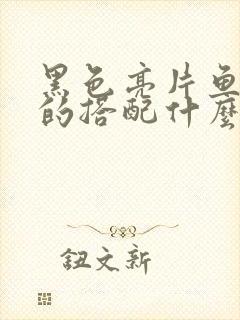 黑色亮片鱼
的搭配什麼
鈕文新